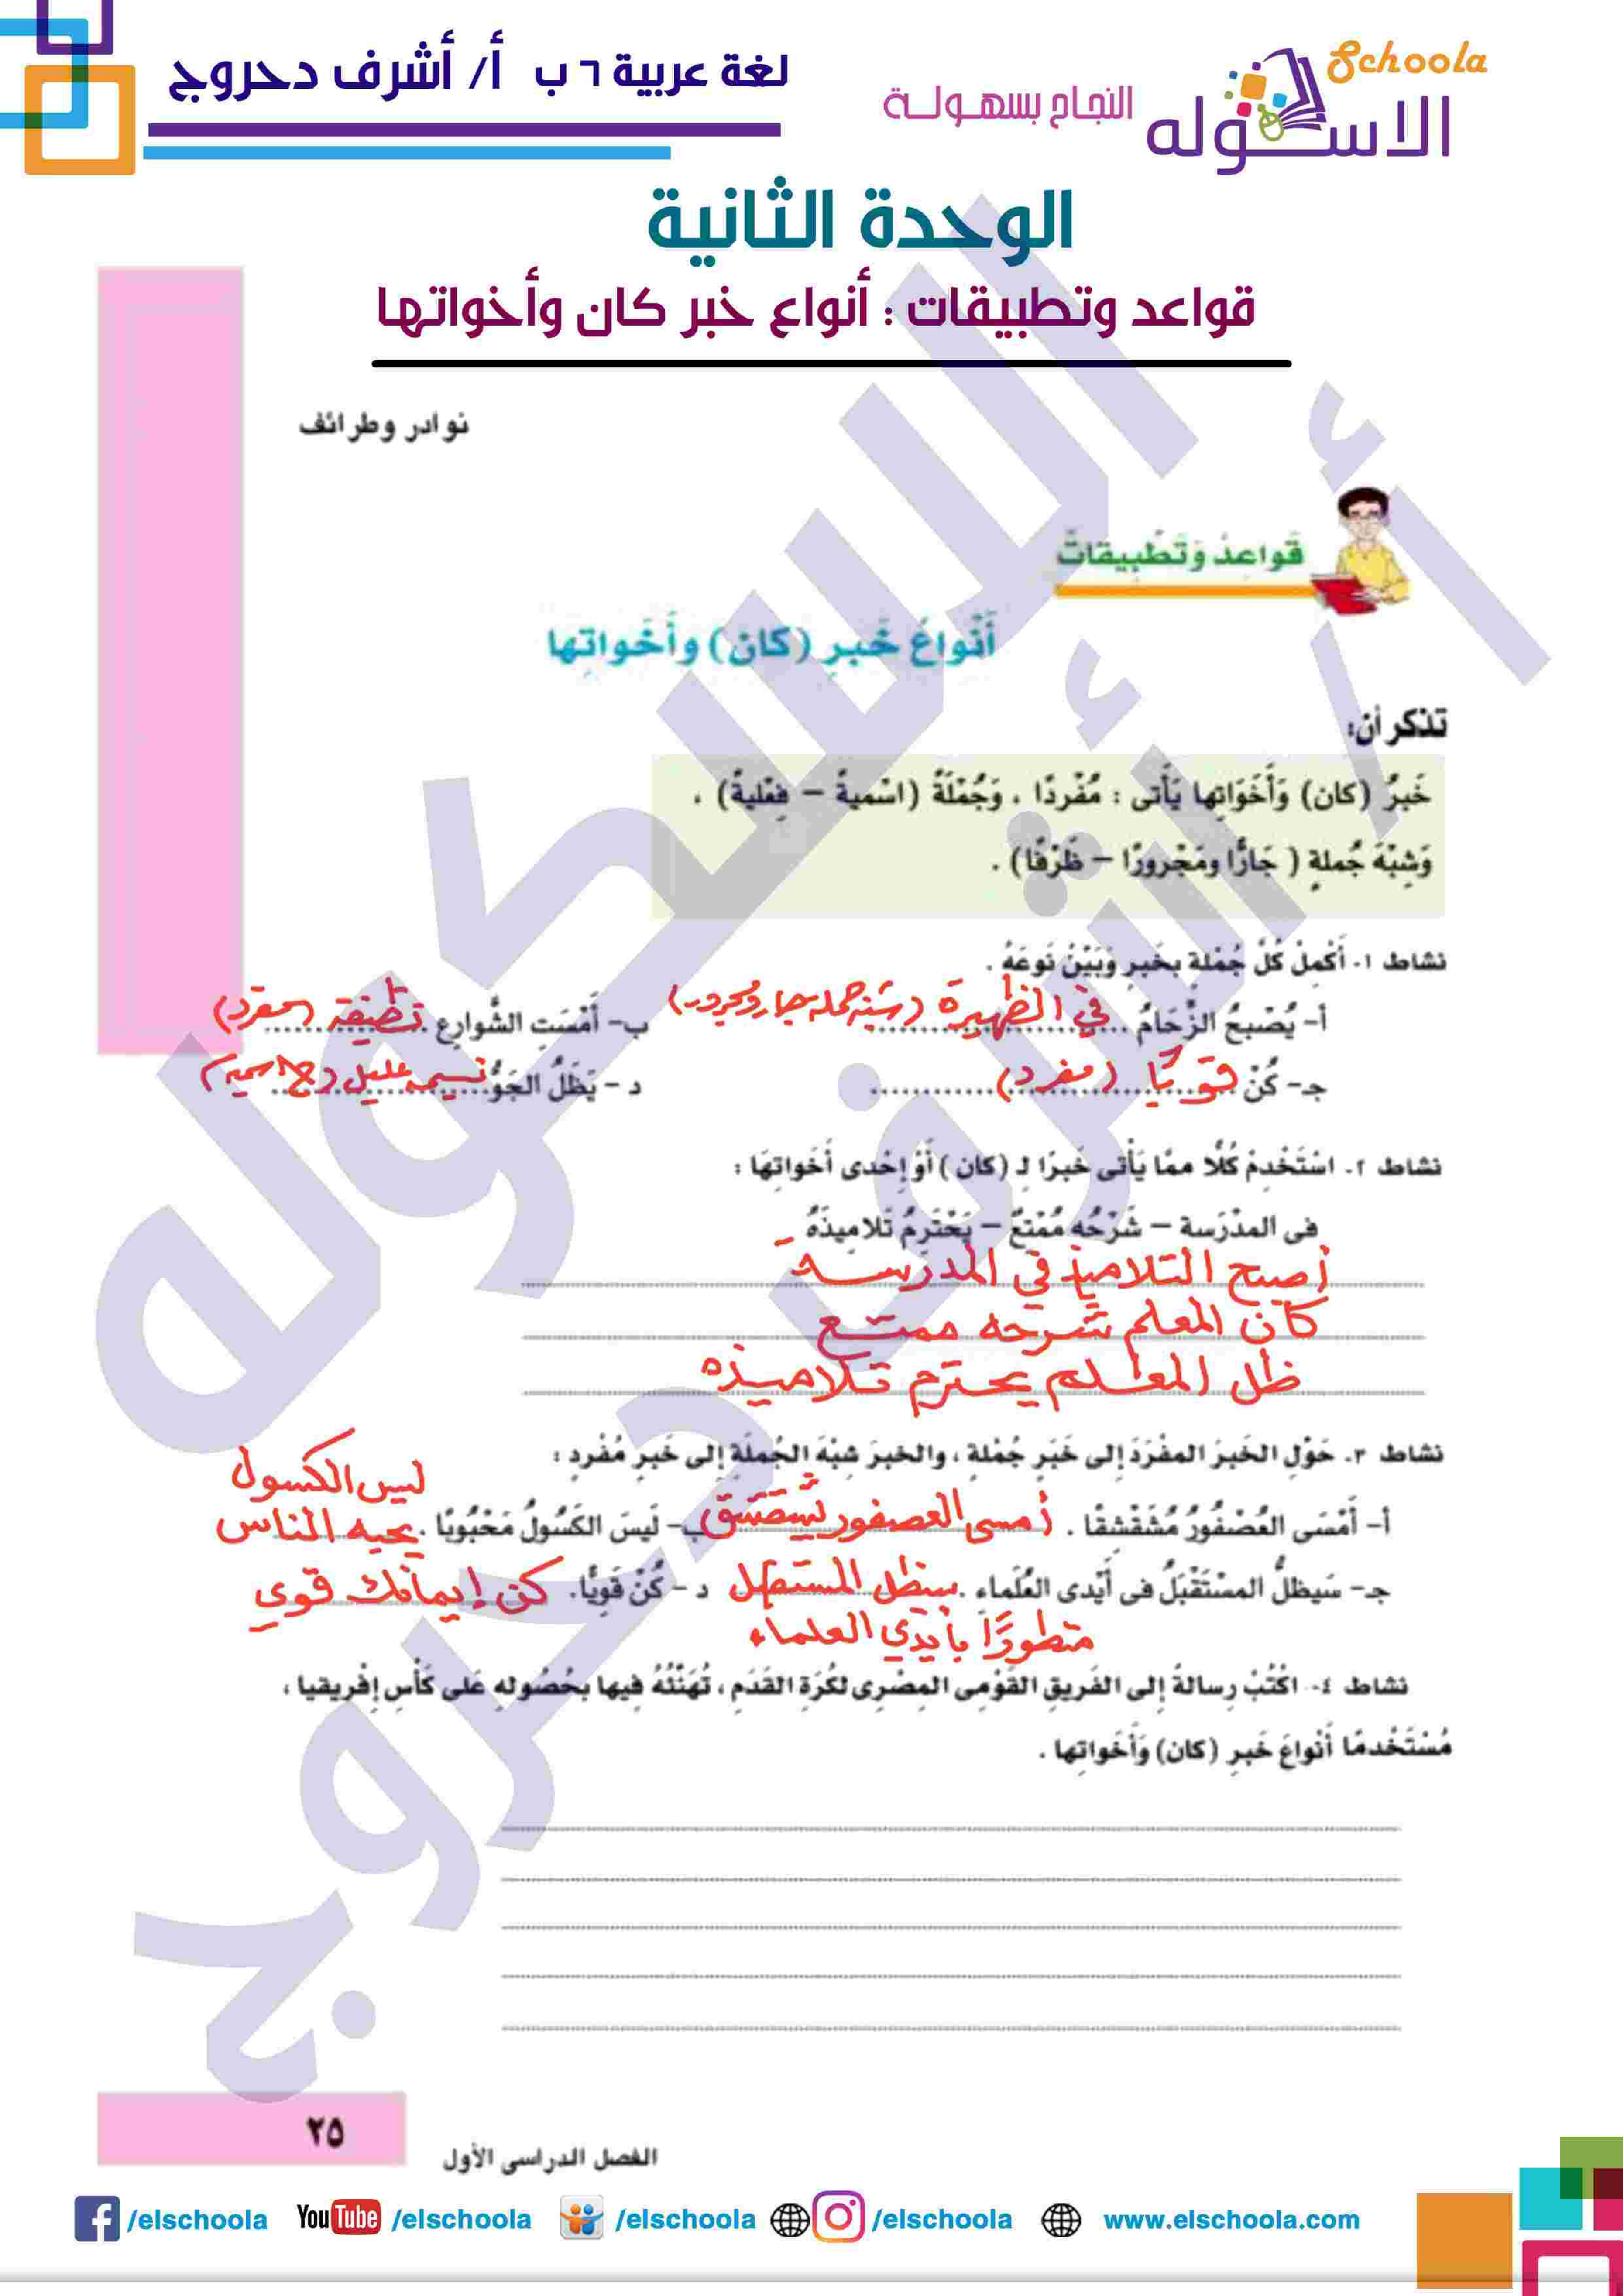 Schoola
الاسكوله
النجاح بسهولة
لغة عربية ٦ ب أ/ أشرف دحروج
الوحدة الثانية
قواعد وتطبيقات : أنواع خبر كان وأخواتها
نوادر وطرائف
قَواعِدُ وَتَطْبِيقاتٌ
أَنْواعُ خَبرِ (كان) وأَخَواتِها
تذكر أن:
خَبرُ (كان) وَأَخَوَاتِها يَأْتى : مُفْردًا ، وَجُمْلَةً (اسْميةً – فِعْليةً) .
وَشِبْهَ جُملةٍ ( جَارًّا ومَجْرورًا – ظَرْفًا) .
نشاط ١- أَكْمِلْ كُلَّ جُمْلةٍ بخَبرٍ وَبَيِّنْ نَوعَهُ .
أ- يُصْبحُ الزِّحَامُ في الظهيرة (شبه جملة جار ومجرور)
ب- أَمْسَتِ الشَّوارِع نظيفة (مفرد)
جـ- كُنْ قويًا (مفرد)
د- يَظَلُّ الجَوُّ نسيمه عليل (ج اسمية)
نشاط ٢- اسْتَخْدِمْ كُلًّا ممَّا يَأْتى خَبرًا لـ (كان ) أَوْ إِحْدى أَخَواتِهَا :
فى المدْرَسة – شَرْحُه مُمْتعٌ – يَحْتَرِمُ تَلاميذَهُ
أصبح التلاميذ في المدرسة
كان المعلم شرحه ممتع
ظل المعلم يحترم تلاميذه
نشاط ٣- حَوِّل الخَبرَ المفْرَدَ إلى خَبَرِ جُمْلةٍ ، والخبرَ شبْهَ الجُملَةِ إلى خَبرٍ مُفْردٍ :
أ- أَمْسَى العُصْفُورُ مُشَقْشِقًا . أمسى العصفور يشقشق
ب- لَيسَ الكَسُولُ مَحْبُوبًا . ليس الكسول يحبه الناس
جـ- سَيظلُّ المسْتَقْبَلُ فى أَيْدى العُلَماء . سيظل المستقبل متطورًا بأيدي العلماء
د- كُنْ قَويًّا. كن إيمانك قوي
نشاط ٤- اكْتُبْ رِسالةً إلى الفَريقِ القَوْمِى المِصْرِى لكُرَةِ القَدَمِ ، تُهَنِّئُهُ فيها بحُصُولهِ عَلى كَأْسِ إفْريقيا ،
مُسْتَخْدمًا أَنْواعَ خَبرِ (كان) وَأَخَواتِها .
٢٥
الفصل الدراسى الأول
/elschoola YouTube /elschoola /elschoola /elschoola www.elschoola.com
الاسكوله
أ/ أشرف دحروج